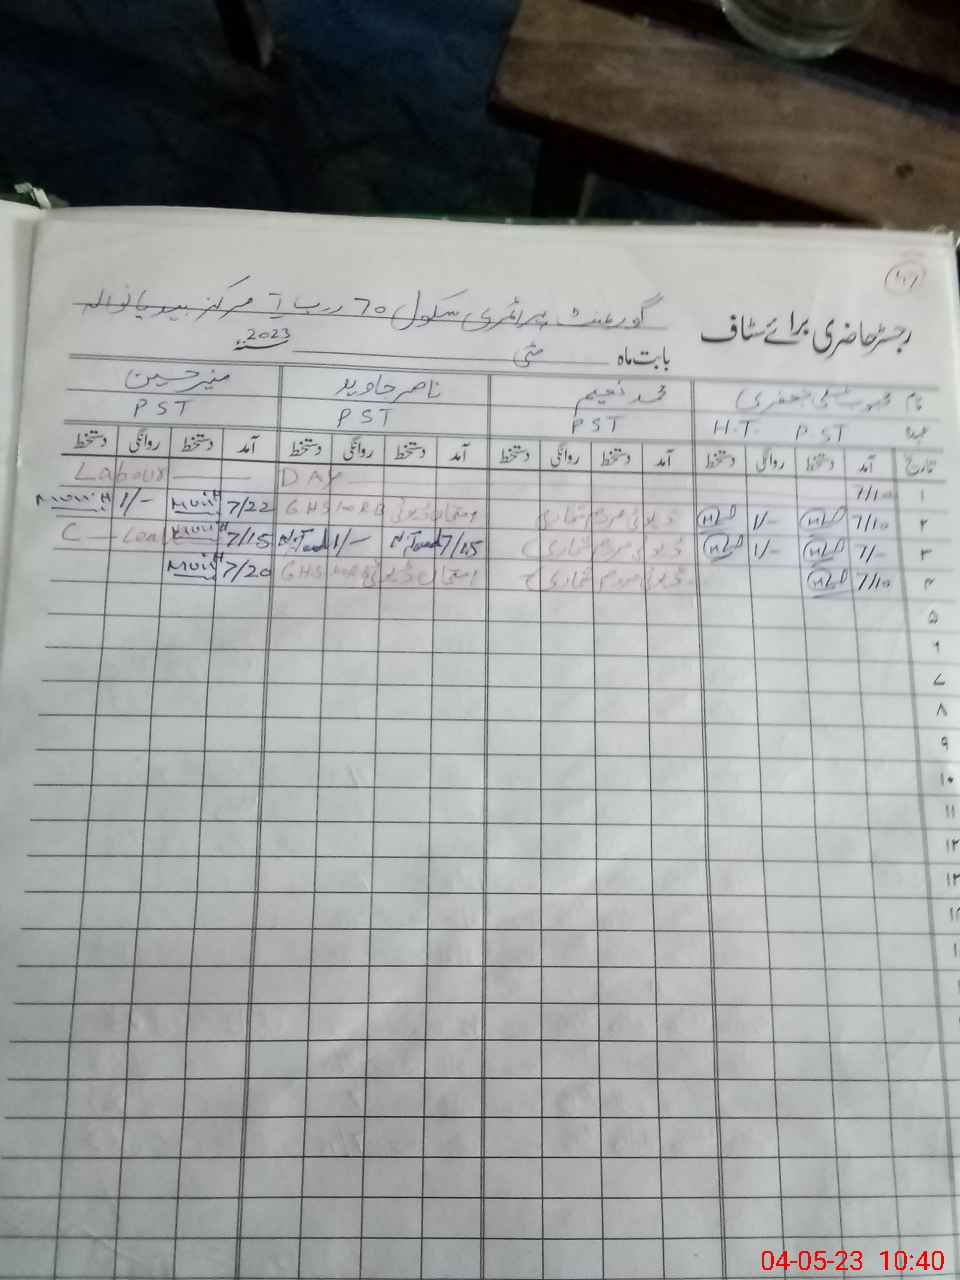 رجسٹر حاضری برائے سٹاف
گورنمنٹ پرائمری سکول 70 ر ب 1 مرکز
بابت ماہ مئی 2023ء
نام محبوب علی جعفری محمد نعیم ناصر جاوید منیر حسین
عہدہ H.T. PST PST PST PST
تاریخ آمد دستخط روانگی دستخط آمد دستخط روانگی دستخط آمد دستخط روانگی دستخط آمد دستخط روانگی دستخط
۱ 7/10 Labour DAY
۲ 7/10 1/- ڈیوٹی مردم شماری امتحان ڈیوٹی GHS RB 7/22 Munir 1/- Munir
۳ 7/- 1/- ڈیوٹی مردم شماری 7/15 1/- 7/15 Munir C-Leave
۴ 7/10 ڈیوٹی مردم شماری امتحان ڈیوٹی GHS 7/20 Munir
۵
۶
۷
۸
۹
۱۰
۱۱
۱۲
۱۳
04-05-23 10:40